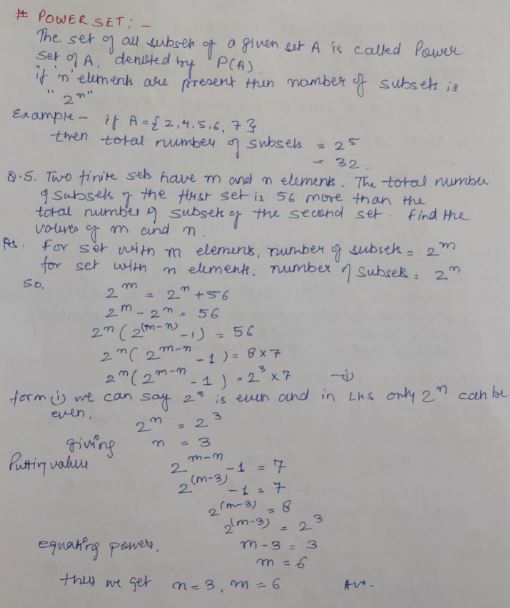 # POWER SET : -
The set of all subset of a given set A is called Power
Set of A, denoted by P(A)
if 'n' elements are present then number of subsets is
"2ⁿ"
Example - if A = {2,4,5,6,7}
then total number of subsets = 2⁵
= 32
Q.5. Two finite sets have m and n elements. The total number
of subsets of the first set is 56 more than the
total number of subset of the second set. Find the
values of m and n.
As. For set with m elements, number of subsets = 2ᵐ
for set with n element, number of subsets = 2ⁿ
So,
2ᵐ = 2ⁿ + 56
2ᵐ - 2ⁿ = 56
2ⁿ ( 2⁽ᵐ⁻ⁿ⁾ - 1) = 56
2ⁿ ( 2ᵐ⁻ⁿ - 1) = 8 x 7
2ⁿ ( 2ᵐ⁻ⁿ - 1) = 2³ x 7 —(i)
form (i) we can say 2³ is even and in LHS only 2ⁿ can be
even,
2ⁿ = 2³
giving n = 3
Putting value 2ᵐ⁻ⁿ - 1 = 7
2⁽ᵐ⁻³⁾ - 1 = 7
2⁽ᵐ⁻³⁾ = 8
2⁽ᵐ⁻³⁾ = 2³
equating powers, m - 3 = 3
m = 6
thus we get n = 3, m = 6 Ans.